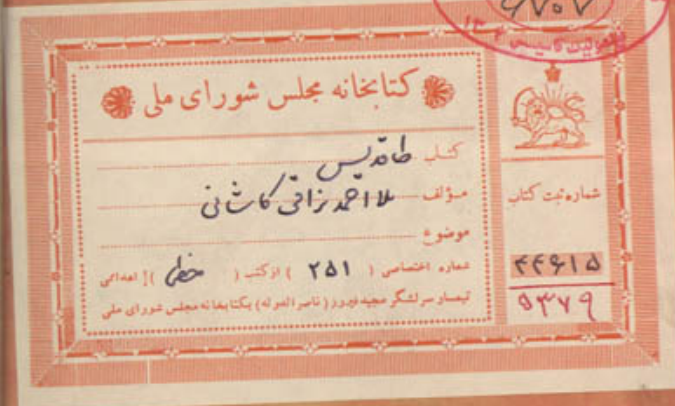 کتابخانه مجلس شورای ملی
کتاب طاقدیس
مؤلف ملا احمد نراقی کاشانی
موضوع
شماره اختصاصی ( ۲۵۱ ) از کتب ( خطی ) اهدائی
تیمسار سرلشگر مجید فیروز (ناصرالدوله) بکتابخانه مجلس شورای ملی
شماره ثبت کتاب
۴۴۶۱۵
۵۳۷۹